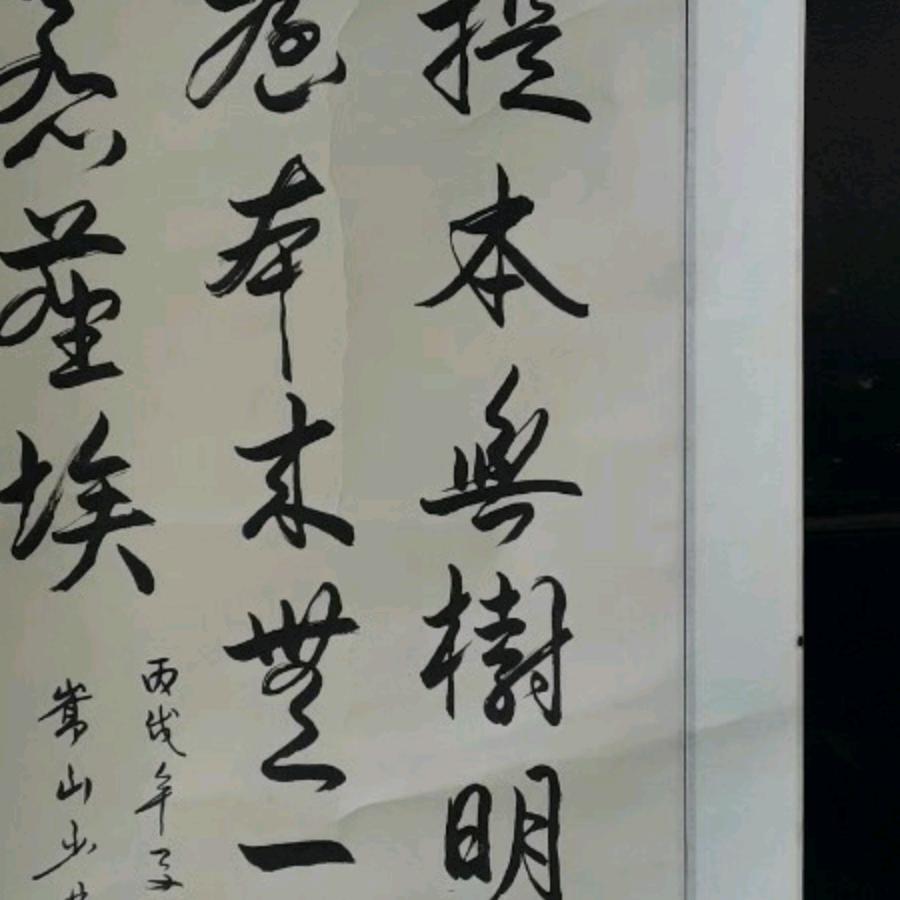 提本無樹明
本来無一
惹塵埃
丙戌年
嵩山少